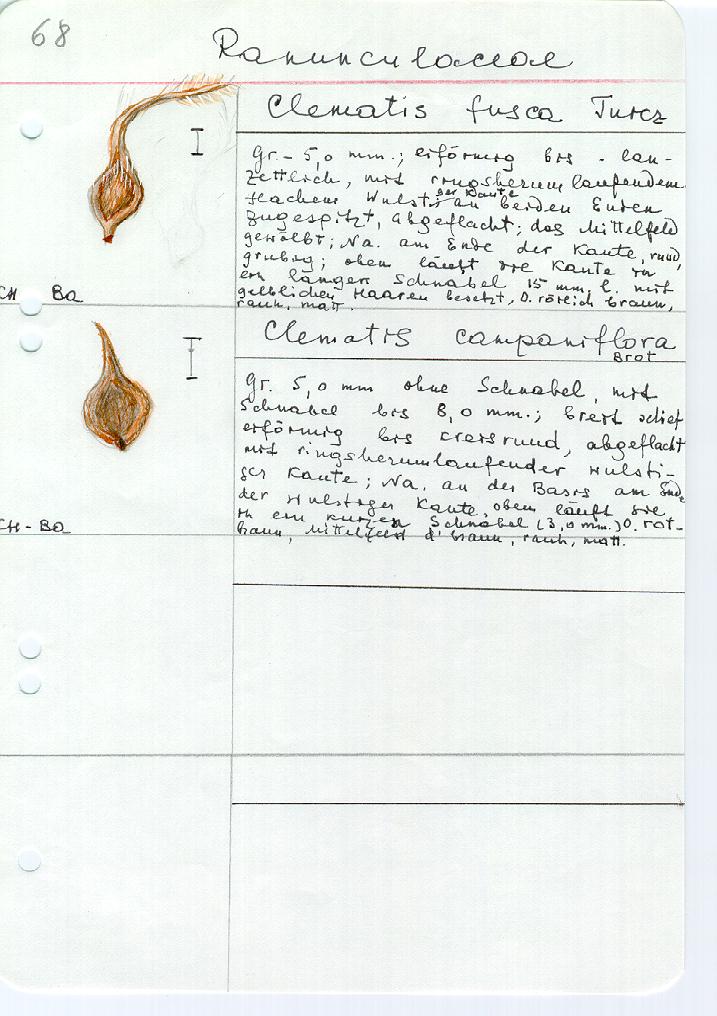 68
Ranunculaceae
Clematis fusca Turcz
Gr. - 5,0 mm.; eiförmig bis - lan-
zettlich, mit ringsherum laufendem
flachem Wulst; an beiden Enden
der Kante
zugespitzt, abgeflacht; das Mittelfeld
gewölbt; Na. am Ende der Kante, rund,
grubig; oben läuft die Kante in
ein langen Schnabel 15 mm. l. mit
gelblichen Haaren besetzt, O. rötlich braun,
rauh, matt.
CH Ba
Clematis campaniflora
Brot
Gr. 5,0 mm ohne Schnabel, mit
Schnabel bis 8,0 mm.; breit schief
eiförmig bis kreisrund, abgeflacht
mit ringsherumlaufender wulsti-
ger Kante; Na. an der Basis am Ende
der wulstiger Kante, oben läuft sie
in ein kurzen Schnabel (3,0 mm.) O. rot-
braun, Mittelfeld d' braun, rauh, matt.
CH - Ba